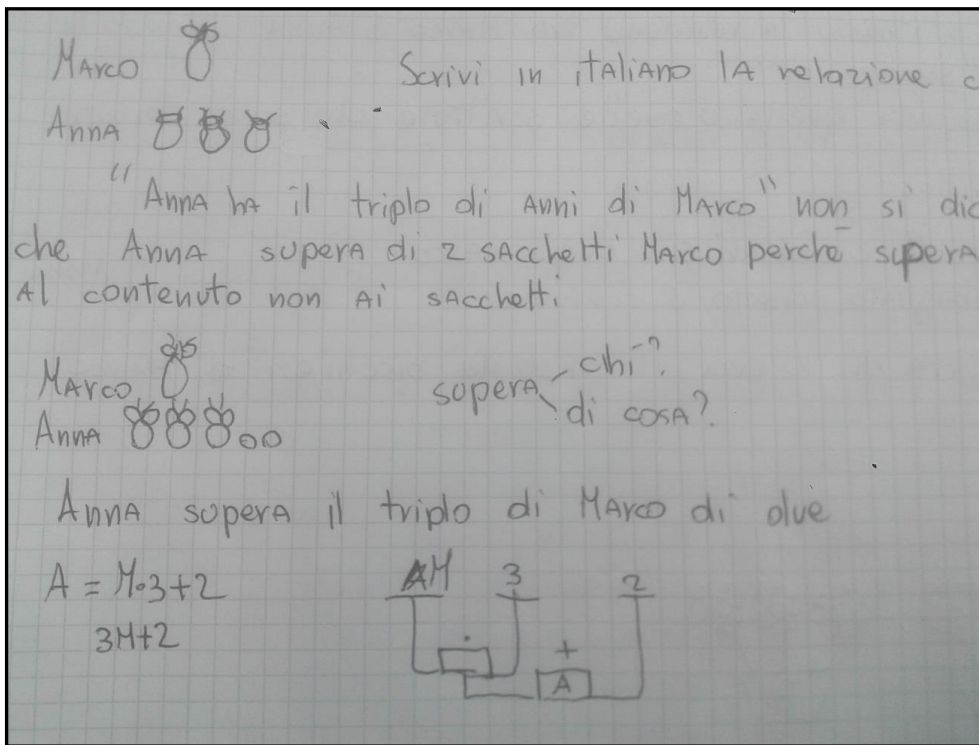 Marco
Scrivi in italiano la relazione
Anna
"Anna ha il triplo di anni di Marco" non si dic
che Anna supera di 2 sacchetti Marco perchè supera
al contenuto non ai sacchetti
Marco
supera chi?
di cosa?
Anna
Anna supera il triplo di Marco di due
A = M·3+2
3M+2
M 3 2
· +
A